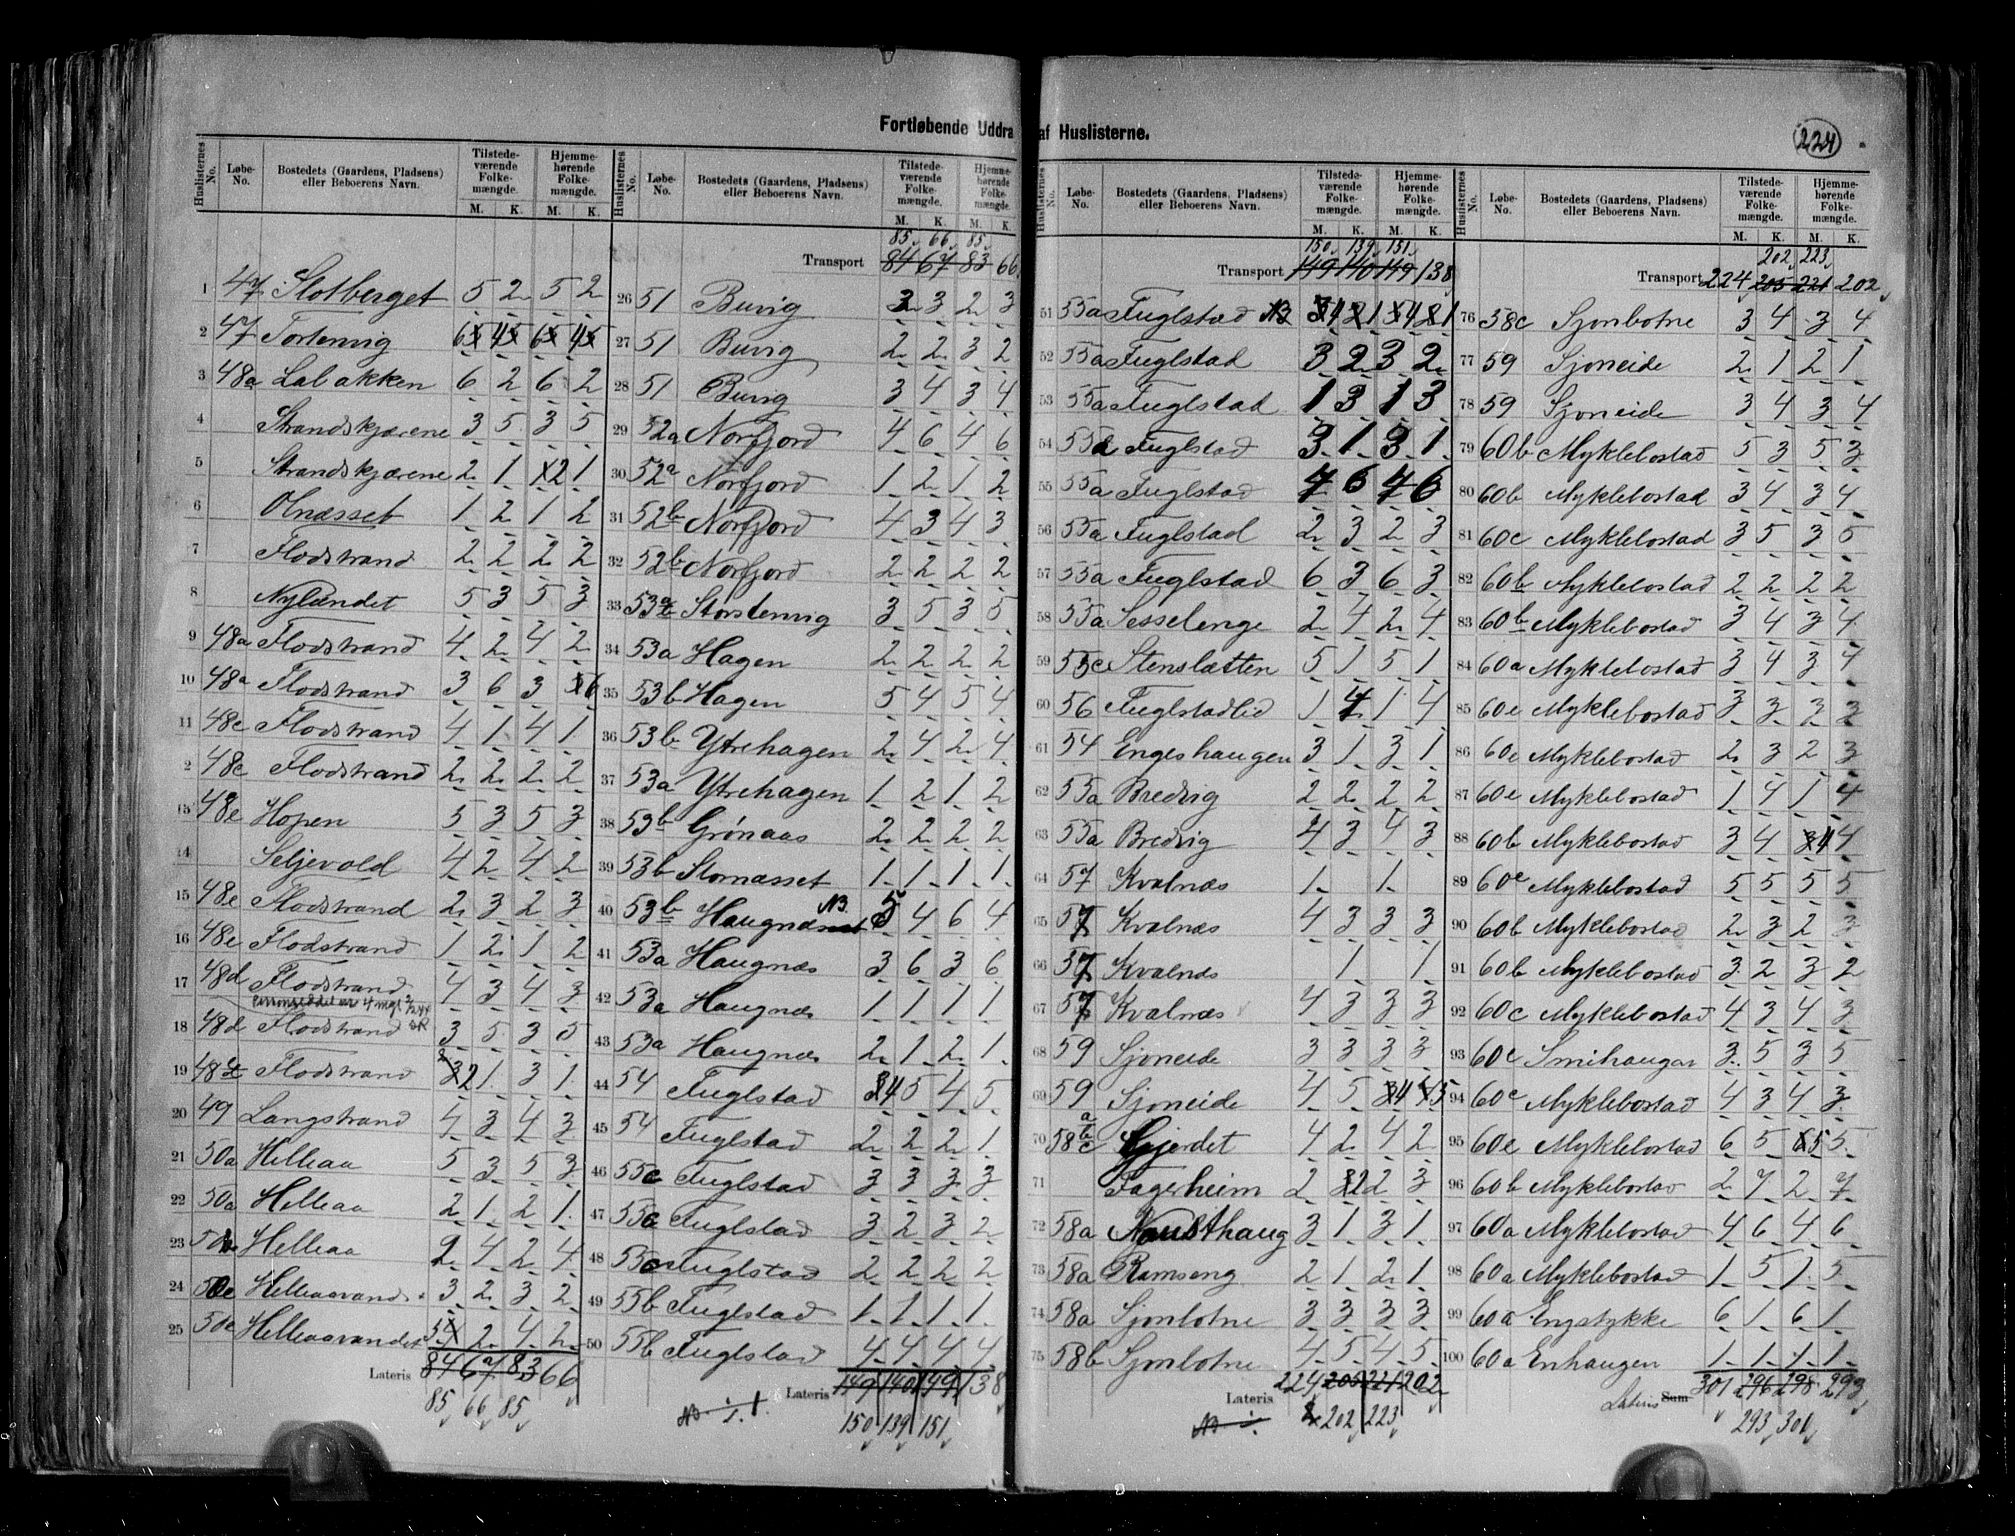 Fortløbende Uddra af Huslisterne.
224
Huslisternes No. Løbe-No. Bostedets (Gaardens, Pladsens) eller Beboerens Navn. Tilstede-værende Folke-mængde. M. K. Hjemme-hørende Folke-mængde. M. K.
1 47 Slotberget 5 2 5 2
2 47 Tortenvig 6 4 6 4
3 48a Labakken 6 2 6 2
4 Strandskjærene 3 5 3 5
5 Strandskjærene 2 1 2 1
6 Olnæsset 1 2 1 2
7 Flodstrand 2 2 2 2
8 Nylændet 5 3 5 3
9 48a Flodstrand 4 2 4 2
10 48a Flodstrand 3 6 3 6
11 48c Flodstrand 4 1 4 1
2 48c Flodstrand 2 2 2 2
13 48e Hopen 5 3 5 3
14 Seljevold 4 2 4 2
15 48e Flodstrand 2 3 2 3
16 48e Flodstrand 1 2 1 2
17 48d Flodstrand 4 3 4 3
18 48d Flodstrand 3 5 3 5
19 48d Flodstrand 2 1 3 1
20 49 Langstrand 4 3 4 3
21 50a Helleaa 5 3 5 3
22 50a Helleaa 2 1 2 1
23 50b Helleaa 2 4 2 4
24 50e Helleaavand 3 2 3 2
25 50a Helleaavandet 5 2 4 2
Lateris 84 67 83 66
85 66 85
Huslisternes No. Løbe-No. Bostedets (Gaardens, Pladsens) eller Beboerens Navn. Tilstede-værende Folke-mængde. M. K. Hjemme-hørende Folke-mængde. M. K.
85 66 85
Transport 84 67 83 66
26 51 Buvig 2 3 2 3
27 51 Buvig 2 2 3 2
28 51 Buvig 3 4 3 4
29 52a Norfjord 4 6 4 6
30 52a Norfjord 1 2 1 2
31 52b Norfjord 4 3 4 3
32 52b Norfjord 2 2 2 2
33 53a Storstenvig 3 5 3 5
34 53a Hagen 2 2 2 2
35 53b Hagen 5 4 5 4
36 53b Ytrehagen 2 4 2 4
37 53a Ytrehagen 1 2 1 2
38 53b Grönaas 2 2 2 2
39 53b Slomæsset 1 1 1 1
40 53b Haugnæs NB. 5 4 6 4
41 53a Haugnæs 3 6 3 6
42 53a Haugnæs 1 1 1 1
43 53a Haugnæs 2 1 2 1
44 54 Fuglstad 4 5 4 5
45 54 Fuglstad 2 2 2 1
46 55c Fuglstad 3 3 3 3
47 55c Fuglstad 3 2 3 2
48 55c Fuglstad 2 2 2 2
49 55b Fuglstad 1 1 1 1
50 55b Fuglstad 4 4 4 4
Lateris 149 140 149 138
150 139 151
Huslisternes No. Løbe-No. Bostedets (Gaardens, Pladsens) eller Beboerens Navn. Tilstede-værende Folke-mængde. M. K. Hjemme-hørende Folke-mængde. M. K.
150 139 151
Transport 149 140 149 138
51 55a Fuglstad NB 4 1 4 1
52 55a Fuglstad 3 2 3 2
53 55a Fuglstad 1 3 1 3
54 55a Fuglstad 3 1 3 1
55 55a Fuglstad 4 6 4 6
56 55a Fuglstad 2 3 2 3
57 55a Fuglstad 6 3 6 3
58 55a Sesselenge 2 4 2 4
59 55c Stenslætten 5 1 5 1
60 56 Fuglstadlid 1 4 1 4
61 54 Engeshaugen 3 1 3 1
62 55a Bredvig 2 2 2 2
63 55a Bredvig 4 3 4 3
64 57 Kvalnæs 1 1
65 57 Kvalnæs 4 3 3 3
66 57 Kvalnæs 1 1
67 57 Kvalnæs 4 3 3 3
68 59 Sjoneide 3 3 3 3
69 59 Sjoneide 4 5 4 5
70 58 a b c Gjerdet 4 2 4 2
71 Fagerheim 2 2 2 3
72 58a Nausthaug 3 1 3 1
73 58a Ramseng 2 1 2 1
74 58a Sjonbotne 3 3 3 3
75 58b Sjonbotne 4 5 4 5
Lateris 224 205 221 202
202 223
Huslisternes No. Løbe-No. Bostedets (Gaardens, Pladsens) eller Beboerens Navn. Tilstede-værende Folke-mængde. M. K. Hjemme-hørende Folke-mængde. M. K.
202 223
Transport 224 205 221 202
76 58c Sjonbotne 3 4 3 4
77 59 Sjoneide 2 1 2 1
78 59 Sjoneide 3 4 3 4
79 60b Myklebostad 5 3 5 3
80 60b Myklebostad 3 4 3 4
81 60c Myklebostad 3 5 3 5
82 60b Myklebostad 2 2 2 2
83 60b Myklebostad 3 4 3 4
84 60a Myklebostad 3 4 3 4
85 60e Myklebostad 3 3 3 3
86 60e Myklebostad 2 3 2 3
87 60e Myklebostad 1 4 1 4
88 60b Myklebostad 3 4 4 4
89 60e Myklebostad 5 5 5 5
90 60b Myklebostad 2 3 2 3
91 60b Myklebostad 3 2 3 2
92 60c Myklebostad 4 3 4 3
93 60c Smihaugar 3 5 3 5
94 60c Myklebostad 4 3 4 3
95 60e Myklebostad 6 5 5 5
96 60b Myklebostad 2 7 2 7
97 60a Myklebostad 4 6 4 6
98 60a Myklebostad 1 5 1 5
99 60a Engstykke 6 1 6 1
100 60a Enhaugen 1 1 1 1
Lateris Sum 301 296 298 293
293 301